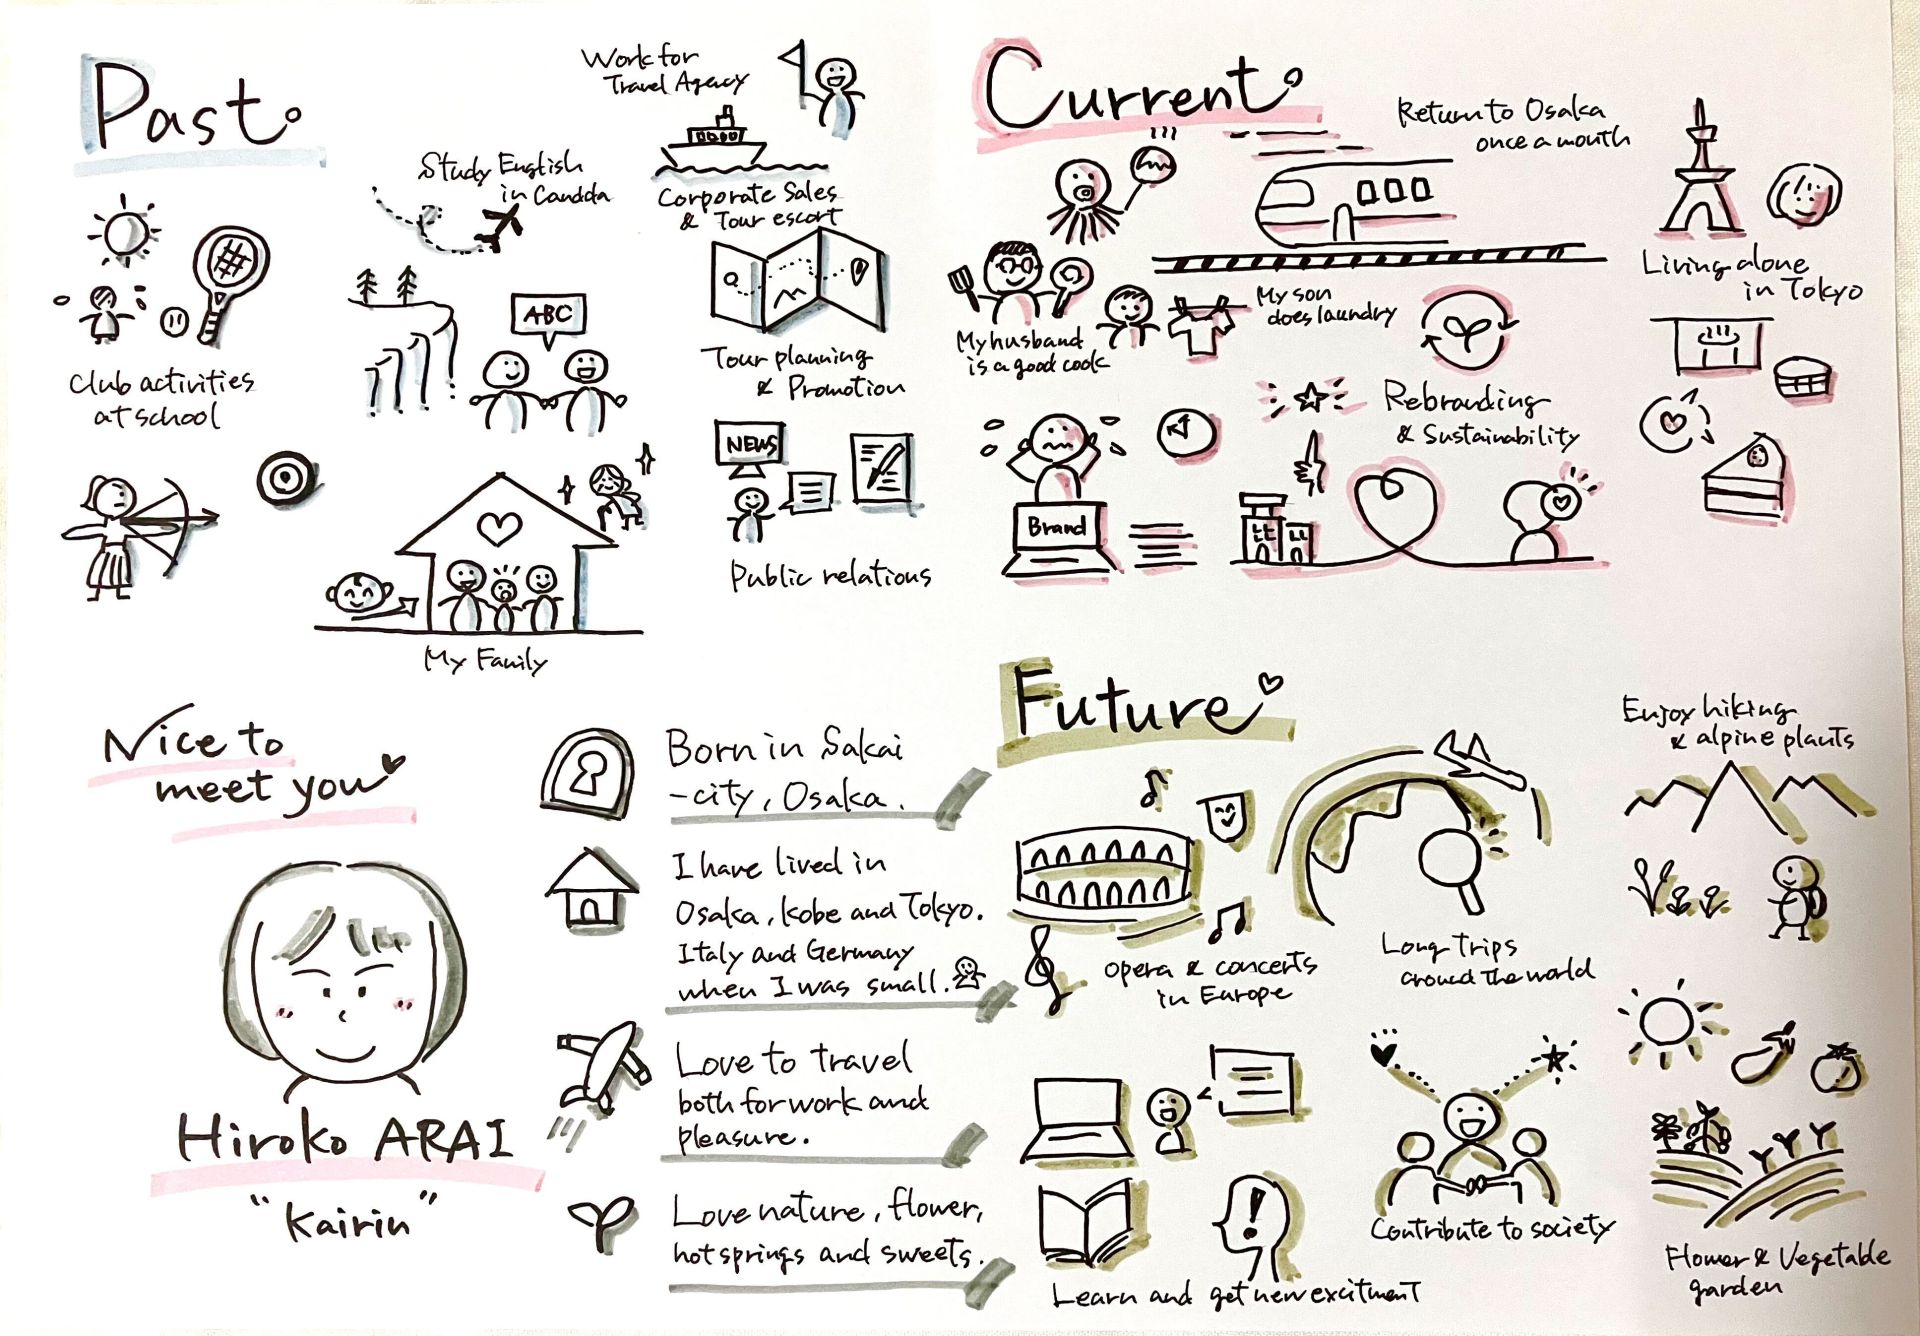 Past.
Work for
Travel Agency
Study English
in Candda
Corporate Sales
& Tour escort
Club activities
at school
ABC
Tour planning
& Promotion
NEWS
Public relations
My Family
Current.
Return to Osaka
once a mouth
Living alone
in Tokyo
My husband
is a good cook
My son
does laundry
Rebranding
& Sustainability
Brand
Nice to
meet you
Hiroko ARAI
"Kairin"
Born in Sakai
-city, Osaka.
I have lived in
Osaka, Kobe and Tokyo.
Italy and Germany
when I was small.
Love to travel
both for work and
pleasure.
Love nature, flower,
hot springs and sweets.
Future
Opera & concerts
in Europe
Long Trips
around the world
Enjoy hiking
& alpine plants
Learn and get new excitment
Contribute to society
Flower & Vegetable
garden